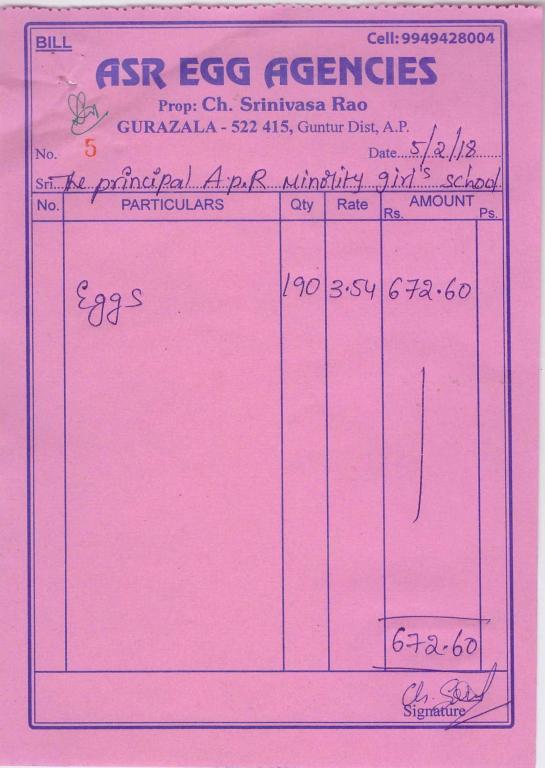 BILL Cell: 9949428004
ASR EGG AGENCIES
Prop: Ch. Srinivasa Rao
GURAZALA - 522 415, Guntur Dist, A.P.
No. 5 Date 5/2/18
Sri. The principal A.p.R Minority girl's school
No. PARTICULARS Qty Rate AMOUNT
Rs. Ps.
Eggs 190 3.54 672.60
672.60
Signature